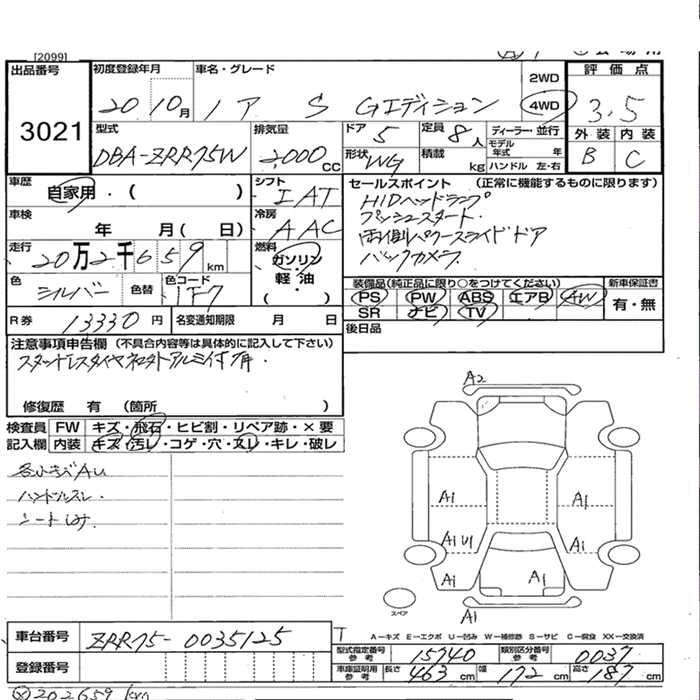 [2099]
出品番号 初度登録年月 車名・グレード 2WD 評価点
3021 20 10月 ノア S Gエディション 4WD 3.5
外装 内装
B C
型式 排気量 ドア 定員 ディーラー・並行
DBA-ZRR75W 2000CC 5 8人 モデル年式 年
形状 WG 積載 kg ハンドル 左・右
車歴 自家用・( ) シフト IAT
セールスポイント (正常に機能するものに限ります)
HIDヘッドランプ
プッシュスタート
両側パワースライドドア
バックカメラ
車検 年 月( 日) 冷房 AAC
走行 20万2千659km 燃料 ガソリン・軽油・( )
色 シルバー 色替 色コード 1F7
装備品(純正品に限り○をつけてください) 新車保証書
PS PW ABS エアB AW 有・無
SR ナビ TV
R券 13330円 名変通知期限 月 日
後日品
注意事項申告欄 (不具合内容等は具体的に記入して下さい)
スタッドレスタイヤ
修復歴 有 (箇所 )
検査員記入欄 FW キズ・飛石・ヒビ割・リペア跡・×要
内装 キズ・汚レ・コゲ・穴・スレ・キレ・破レ
各小キズAU
ハンドルスレ
A2
A1 A1
A1U1 A1
A1 A1
A1
スペア
A-キズ E-エクボ U-凹み W-補修跡 S-サビ C-腐食 XX-交換済
車台番号 ZRR75-0035125
登録番号
型式指定番号 参考 15740 類別区分番号 参考 0037
車庫証明用 参考 長さ 463cm 幅 172cm 高さ 187cm
202659km